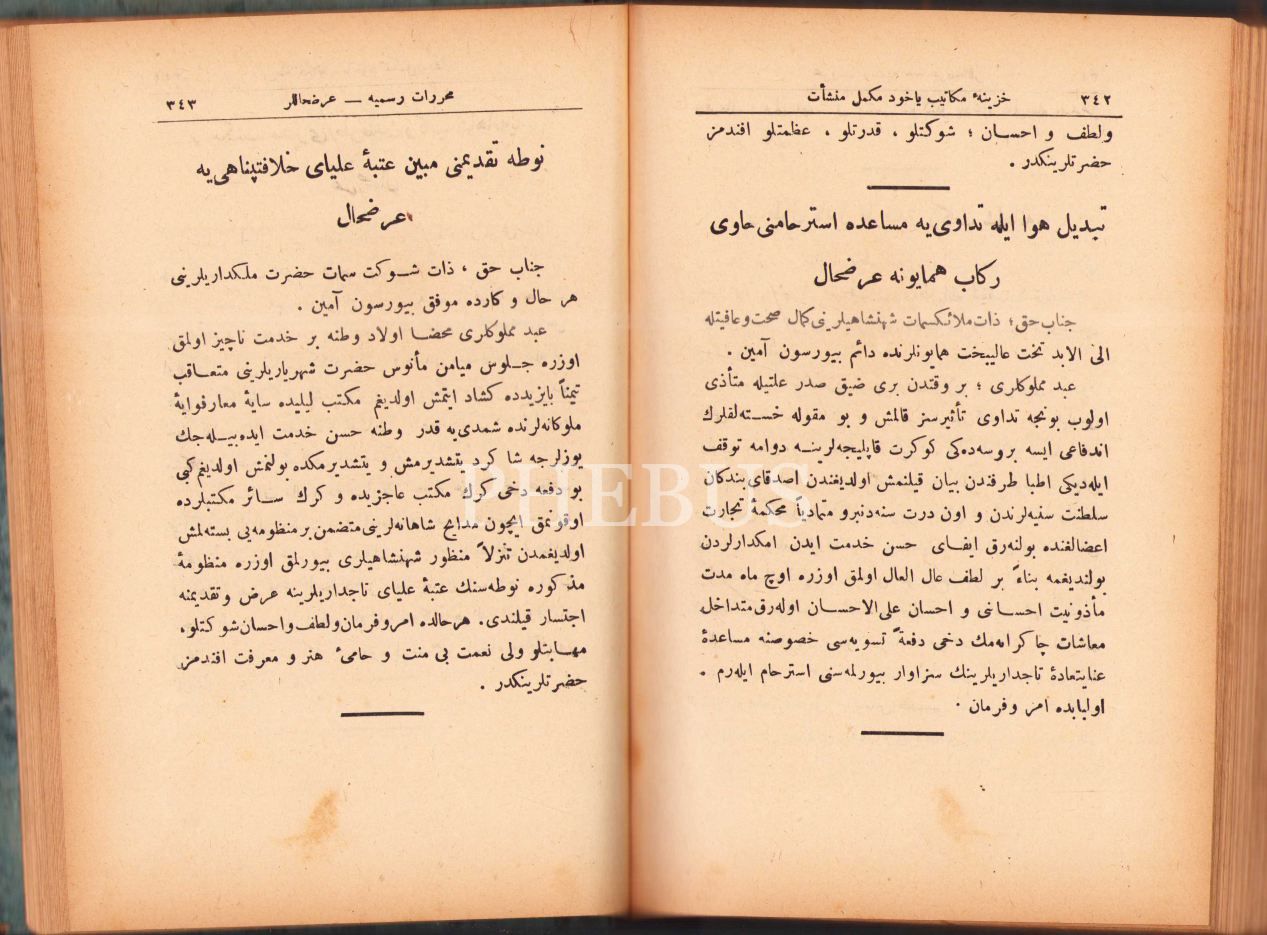 ٣٤٢ خزینهٔ مکاتیب یاخود مکمل منشأت
ولطف و احسان ؛ شوکتلو ، قدرتلو ، عظمتلو افندمز
حضرتلرینکدر .
تبدیل هوا ایله تداوی‌یه مساعده استرحامنی حاوی
رکاب همایونه عرضحال
جناب حق ؛ ذات ملائکسمات شهنشاهیلرینی کمال صحت و عافیتله
الی الابد تخت عالیبخت همایونلرنده دائم بیورسون آمین .
عبد مملوکلری ؛ بر وقتدن بری ضیق صدر علتیله متأذی
اولوب بونجه تداوی تأثیرسز قالمش و بو مقوله خسته‌لقلرك
اندفاعی ایسه بروسه‌ده‌کی کوکرت قاپلیجه‌لرینـه دوامه توقف
ایله‌دیکی اطبا طرفندن بیان قیلنمش اولدیغندن اصدقای بندکان
سلطنت سنیه‌لرندن و اون درت سنه‌دنبرو متمادیاً محکمهٔ تجارت
اعضالغنده بولنه‌رق ایفـای حسن خدمت ایدن امکدارلردن
بولندیغمه بناءً بر لطف عال العال اولمق اوزره اوچ ماه مدت
مأذونیت احسـانی و احسان علی‌الاحسـان اوله‌رق متداخل
معاشات چاکرانه‌مك دخی دفعةً تسویه‌سی خصوصنه مساعدهٔ
عنایتعادهٔ تاجداریلرینك سزاوار بیورلمه‌سنی استرحام ایله‌رم .
اولبابده امر وفرمان .
محررات رسمیه — عرضحاللر ٣٤٣
نوطه تقدیمنی مبین عتبهٔ علیای خلافتپناهی‌یه
عرضحال
جناب حق ، ذات شـوکت سمات حضرت ملکداریلرینی
هر حال و کارده موفق بیورسون آمین .
عبد مملوکلری محضـا اولاد وطنه بر خدمت ناچیز اولمق
اوزره جـلوس میامن مأنوس حضرت شهریاریلرینی متعـاقب
تیمناً بایزیدده کشاد ایتمش اولدیغم مکتب لیلیده سایهٔ معارفوایهٔ
ملوکانه‌لرنده شمدی‌یه قدر وطنه حسن خدمت ایده‌بیـله‌جك
یوزلرجه شاکرد یتشدیرمش و یتشدیرمکده بولنمش اولدیغم کبی
بو دفعه دخی کرك مکتب عاجزیده و کرك سـائر مکتبلرده
اوقونمق ایچون مدایح شاهانه‌لرینی متضمن بر منظومه‌یی بسته‌لمش
اولدیغمدن تنزلاً منظور شهنشاهیلری بیورلمق اوزره منظومهٔ
مذکوره نوطه‌سنك عتبهٔ علیای تاجداریلرینه عرض وتقدیمنه
اجتسار قیلندی. هرحالده امر وفرمان ولطف واحسان شوکتلو،
مهـابتلو ولی نعمت بی منت و حامیٔ هنر و معرفت افندمز
حضرتلرینکدر .
PHEBUS